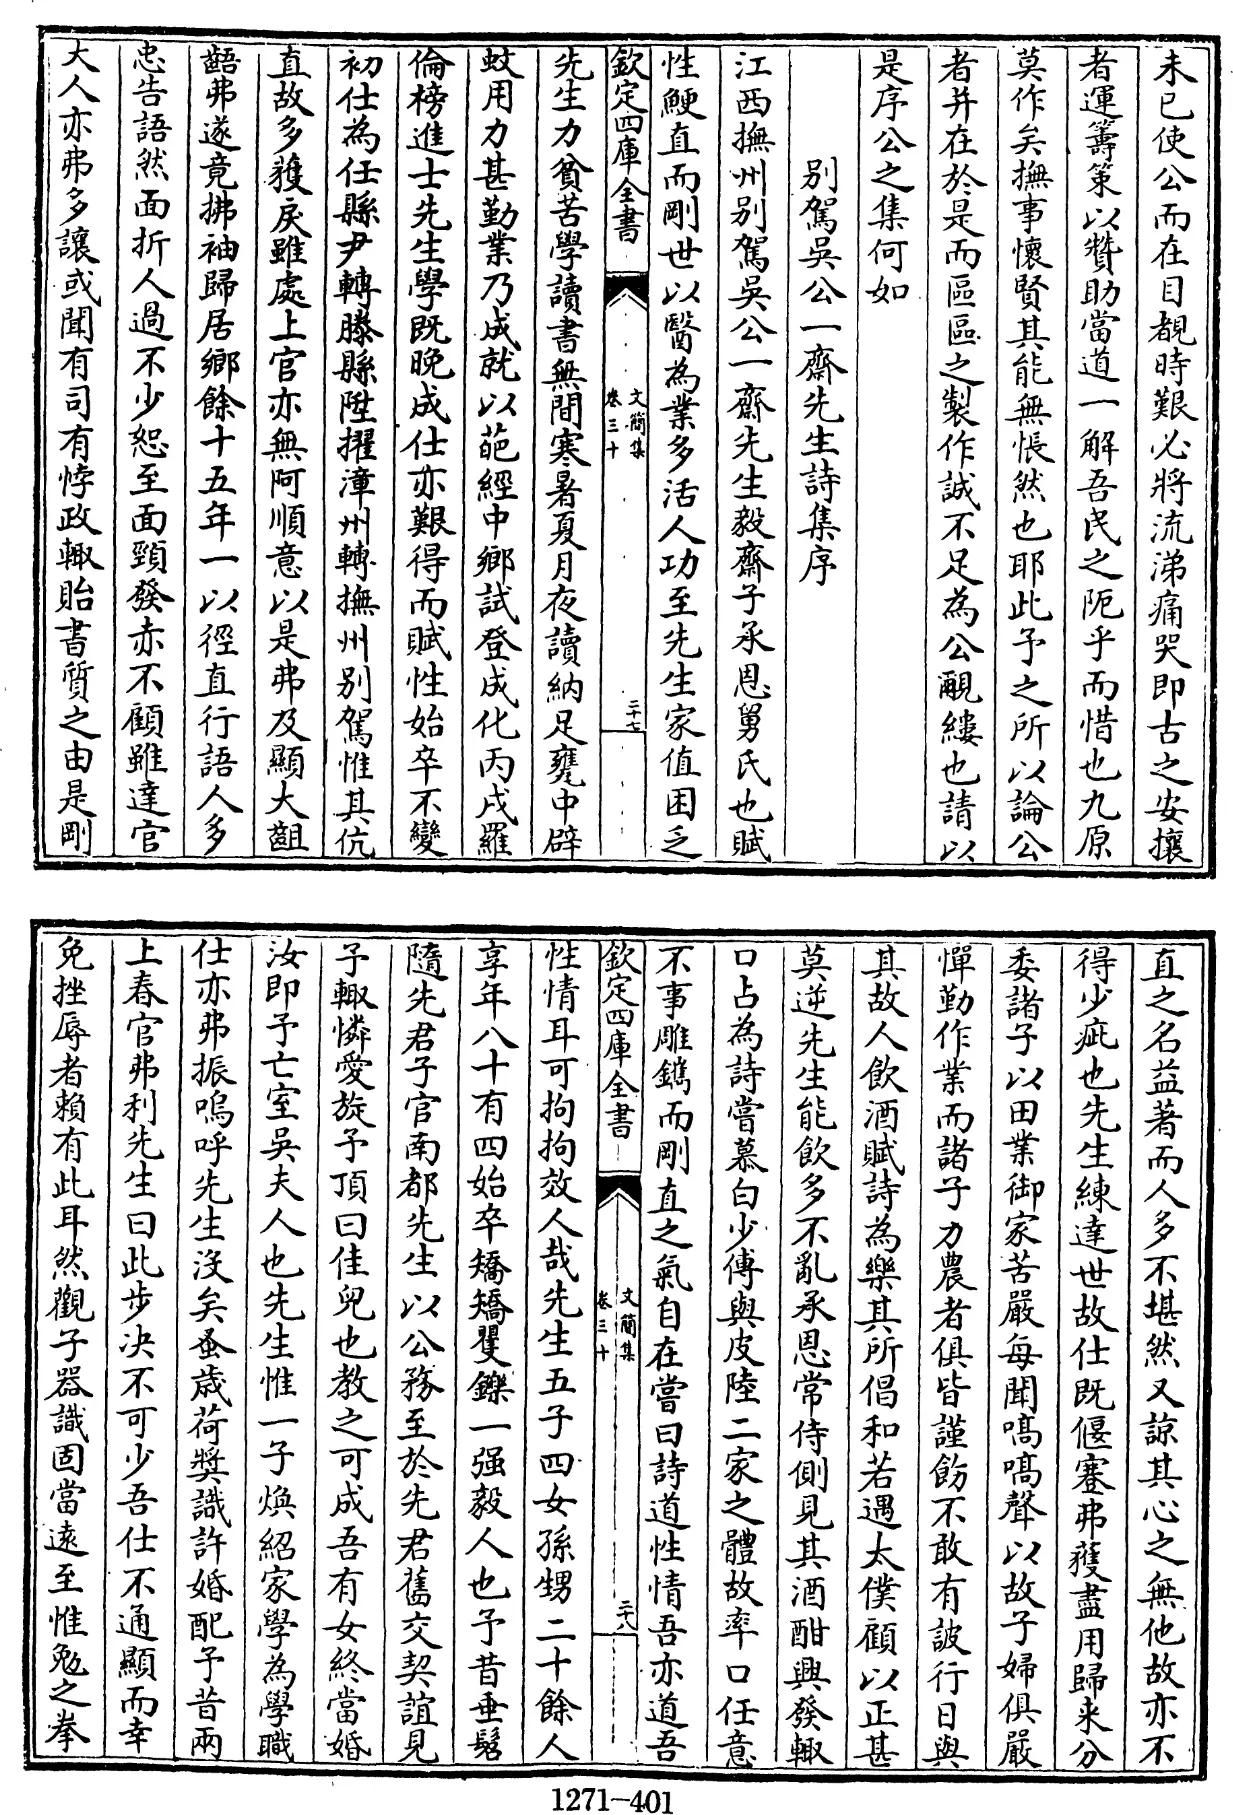 未已使公而在目覩時艱必將流涕痛哭即古之安攘
者運籌策以贊助當道一解吾民之阨乎而惜也九原
莫作矣撫事懷賢其能無悵然也耶此予之所以論公
者并在於是而區區之製作誠不足為公覼縷也請以
是序公之集何如
別駕吳公一齋先生詩集序
江西撫州別駕吳公一齋先生毅齋子承恩舅氏也賦
性鯁直而剛世以醫為業多活人功至先生家值困乏
欽定四庫全書
文簡集
卷三十
二十七
先生力貧苦學讀書無間寒暑夏月夜讀納足甕中辟
蚊用力甚勤業乃成就以葩經中鄉試登成化丙戌羅
倫榜進士先生學既晚成仕亦艱得而賦性始卒不變
初仕為任縣尹轉滕縣陞擢漳州轉撫州別駕惟其伉
直故多獲戾雖處上官亦無阿順意以是弗及顯大齟
齬弗遂竟拂袖歸居鄉餘十五年一以徑直行語人多
忠告語然面折人過不少恕至面頸發赤不顧雖達官
大人亦弗多讓或聞有司有悖政輒貽書質之由是剛
直之名益著而人多不堪然又諒其心之無他故亦不
得少疵也先生練達世故仕既偃蹇弗獲盡用歸来分
委諸子以田業御家苦嚴每聞嗃嗃聲以故子婦俱嚴
憚勤作業而諸子力農者俱皆謹飭不敢有詖行日與
其故人飲酒賦詩為樂其所倡和若遇太僕顧以正甚
莫逆先生能飲多不亂承恩常侍側見其酒酣興發輒
口占為詩嘗慕白少傅與皮陸二家之體故率口任意
不事雕鐫而剛直之氣自在嘗曰詩道性情吾亦道吾
欽定四庫全書
文簡集
卷三十
二十八
性情耳可拘拘效人哉先生五子四女孫甥二十餘人
享年八十有四始卒矯矯矍鑠一强毅人也予昔垂髫
隨先君子官南都先生以公務至於先君舊交契誼見
予輒憐愛旋予頂曰佳兒也教之可成吾有女終當婚
汝即予亡室吳夫人也先生惟一子煥紹家學為學職
仕亦弗振嗚呼先生沒矣蚤歲荷奬識許婚配予昔兩
上春官弗利先生曰此步决不可少吾仕不通顯而幸
免挫辱者賴有此耳然觀子器識固當遠至惟勉之拳
1271—401